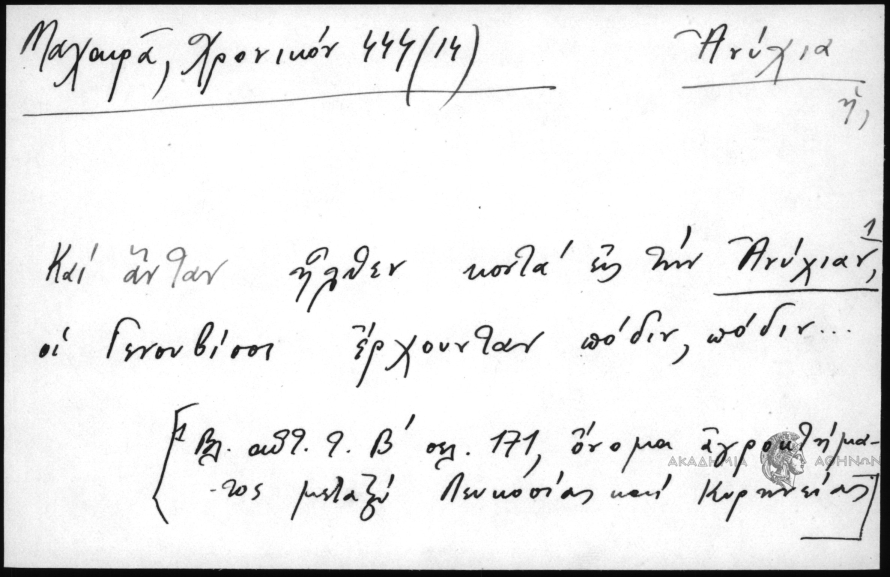 Μαχαιρᾶ, Χρονικόν 444/14) Ἀνύχια
ἡ,
Καί ἄνταν ἦλθεν κοντά εἰς τήν Ἀνύχιαν,1
οἱ Γενουβίσοι ἔρχουνταν πόδιν, πόδιν...
[1 Βλ. αὐτ. τ. Β' σελ. 171, ὄνομα ἀγροκτήμα-
-τος μεταξύ Λευκοσίας καί Κυρηνείας]
ΑΚΑΔΗΜΙΑ ΑΘΗΝΩΝ